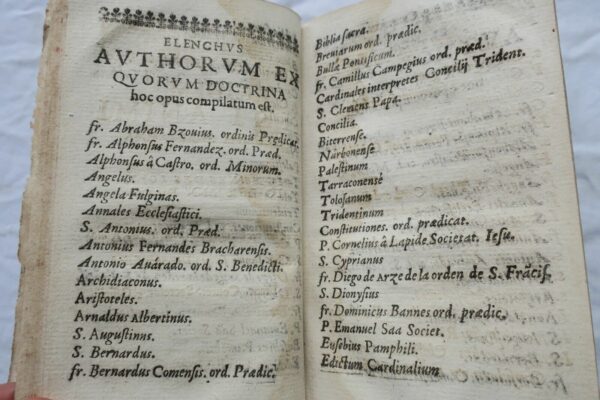 ELENCHVS
AVTHORVM EX
QVORVM DOCTRINA
hoc opus compilatum est.
fr. Abraham Bzouius. ordinis Prædicat.
fr. Alphonsus Fernandez. ord. Præd.
Alphonsus â Castro. ord. Minorum.
Angelus.
Angela Fulginas.
Annales Ecclesiastici.
S. Antonius. ord. Præd.
Antonius Fernandes Bracharensis.
Antonio Auárado. ord. S. Benedicti.
Archidiaconus.
Aristoteles.
Arnaldus Albertinus.
S. Augustinus.
S. Bernardus.
fr. Bernardus Comensis. ord. Prædic.
Biblia sacra.
Breuiarum ord. prædic.
Bullæ Pontificum.
fr. Camillus Campegius ord. præd.
Cardinales interpretes Concilij Trident.
S. Clemens Papa.
Concilia.
Biterrense.
Narbonense
Palestinum
Tarraconensé
Tolosanum
Tridentinum
Constitutiones. ord. prædicat.
P. Cornelius â Lapide. Societat. Iesu.
S. Cyprianus
fr. Diego de Arze de la orden de S. Frãcis.
S. Dionysius
fr. Dominicus Bannes ord. prædic.
P. Emanuel Saa Societ.
Eusebius Pamphili.
Edictum Cardinalium